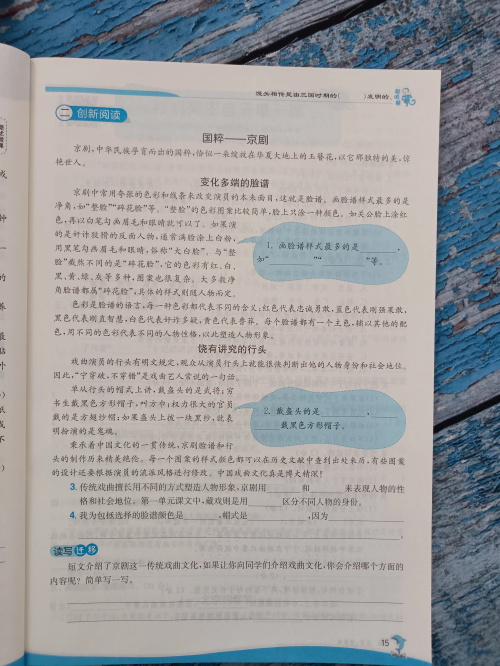 馒头相传是由三国时期的( )发明的。
二 创新阅读
国粹——京剧
京剧,中华民族孕育而出的国粹,恰似一朵绽放在华夏大地上的玉簪花,以它那独特的美,惊
艳世人。
变化多端的脸谱
京剧中常用夸张的色彩和线条来改变演员的本来面目,这就是脸谱。画脸谱样式最多的是
净角,如“整脸”“碎花脸”等。“整脸”的色彩图案比较简单,脸上只涂一种颜色。如关公脸上涂红
色,再以白笔勾画眉毛和眼睛就可以了。如果演
的是奸诈狡猾的反面人物,通常满脸涂上白粉,
用黑笔勾画眉毛和眼睛,俗称“大白脸”。与“整
脸”截然不同的是“碎花脸”,它的色彩有红、白、
黑、黄、绿、灰等多种,图案也很复杂。大多数净
角脸谱都属“碎花脸”,具体的样式则随人物而定。
1. 画脸谱样式最多的是 ,
如“ ”“ ”等。
色彩是脸谱的语言,每一种色彩都代表不同的含义:红色代表忠诚勇敢,蓝色代表刚强果敢,
黑色代表刚直智慧,白色代表奸诈多疑,黄色代表骨莽。每个脸谱都有一个主色,辅以其他的配
色,用不同的色彩代表不同的人物性格,以此塑造人物形象。
饶有讲究的行头
戏曲演员的行头有明文规定,观众从演员行头上就能很快判断出他的人物身份和社会地位。
因此,“宁穿破,不穿错”是戏曲艺人常说的一句话。
单从行头的帽式上讲,戴盔头的是武将;穷
书生戴黑色方形帽子,叫方巾;权力很大的官员
戴的是方翅纱帽;如果盔头上披一块黑纱,就表
明扮演的是鬼魂。
2. 戴盔头的是 ,
戴黑色方形帽子。
秉承着中国文化的一贯传统,京剧脸谱和行
头的制作历来精美绝伦。每一个图案的样式颜色都可以在历史文献中查到出处来历,有些图案
的设计还要根据演员的流派风格进行修改。中国戏曲文化真是博大精深!
3. 传统戏曲擅长用不同的方式塑造人物形象,京剧用 和 来表现人物的性
格和社会地位。第一单元课文中,藏戏则是用 区分不同人物的身份。
4. 我为包拯选择的脸谱颜色是 ,帽式是 ,因为
。
读写迁移
短文介绍了京剧这一传统戏曲文化,如果让你向同学们介绍戏曲文化,你会介绍哪个方面的
内容呢?简单写一写。
15